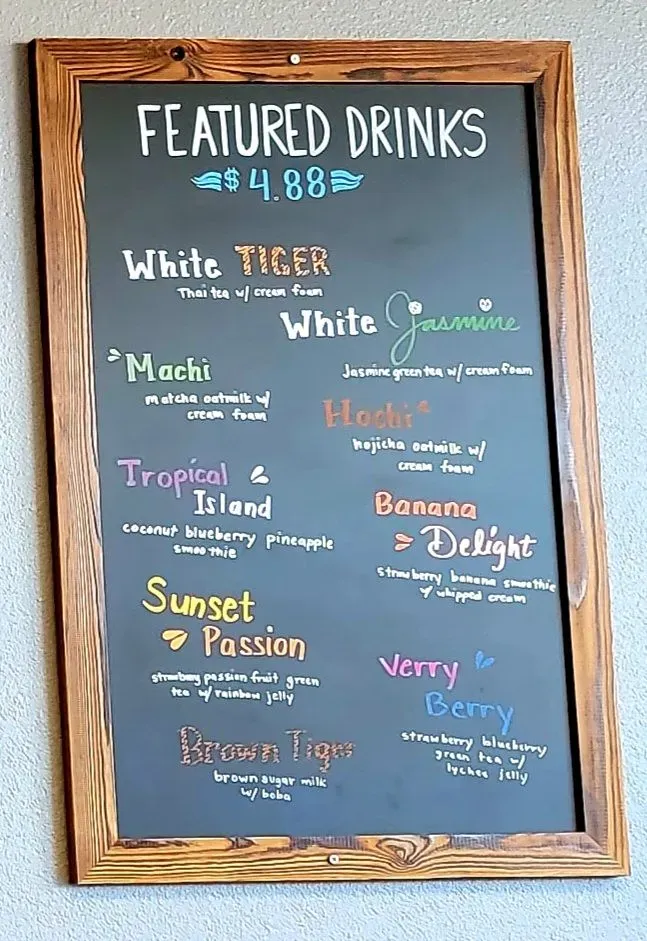 FEATURED DRINKS
$4.88
White TIGER
Thai tea w/ cream foam
White Jasmine
Jasmine green tea w/ cream foam
Machi
matcha oatmilk w/
cream foam
Hochi
hojicha oatmilk w/
cream foam
Tropical
Island
coconut blueberry pineapple
smoothie
Banana
Delight
strawberry banana smoothie
w/ whipped cream
Sunset
Passion
strawberry passion fruit green
tea w/ rainbow jelly
Verry
Berry
strawberry blueberry
green tea w/
lychee jelly
Brown Tiger
brown sugar milk
w/ boba